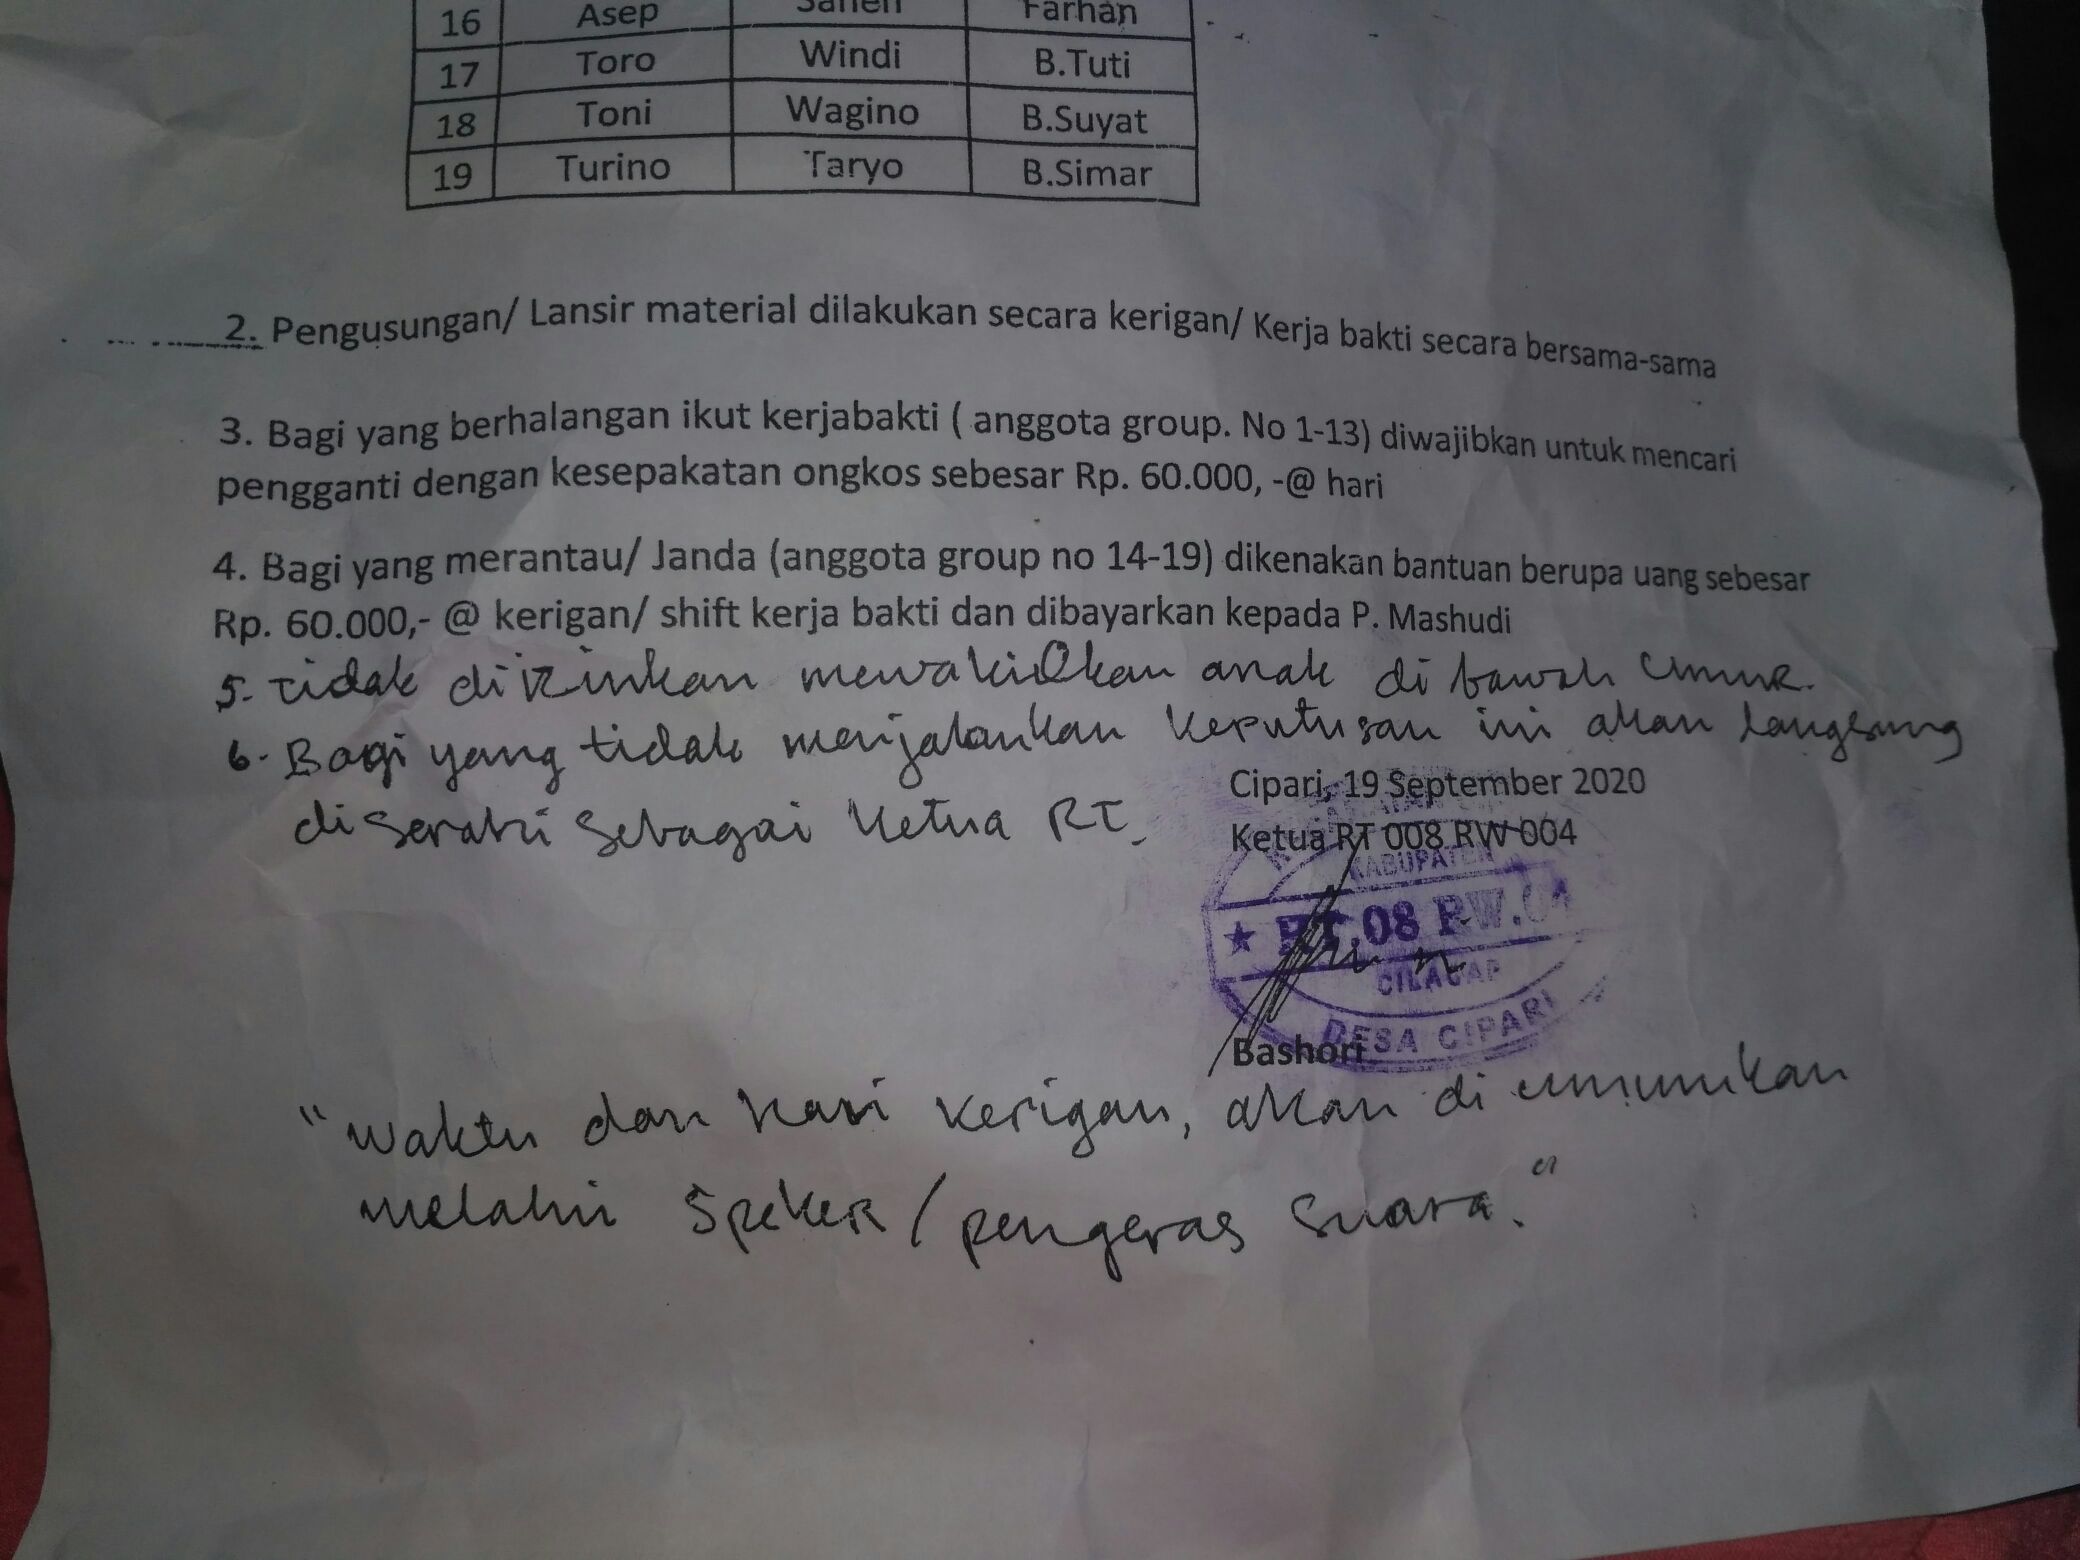 16 Asep Farhan
17 Toro Windi B.Tuti
18 Toni Wagino B.Suyat
19 Turino Taryo B.Simar
2. Pengusungan/ Lansir material dilakukan secara kerigan/ Kerja bakti secara bersama-sama
3. Bagi yang berhalangan ikut kerjabakti ( anggota group. No 1-13) diwajibkan untuk mencari
pengganti dengan kesepakatan ongkos sebesar Rp. 60.000, -@ hari
4. Bagi yang merantau/ Janda (anggota group no 14-19) dikenakan bantuan berupa uang sebesar
Rp. 60.000,- @ kerigan/ shift kerja bakti dan dibayarkan kepada P. Mashudi
5. tidak diizinkan mewakilkan anak di bawah umur.
6. Bagi yang tidak menjalankan keputusan ini akan langsung
di serahi sebagai ketua RT.
Cipari, 19 September 2020
Ketua RT 008 RW 004
KABUPATEN
RT.08 RW.04
CILACAP
DESA CIPARI
Bashori
"waktu dan hari kerigan, akan di umumkan
melalui speker / pengeras suara."